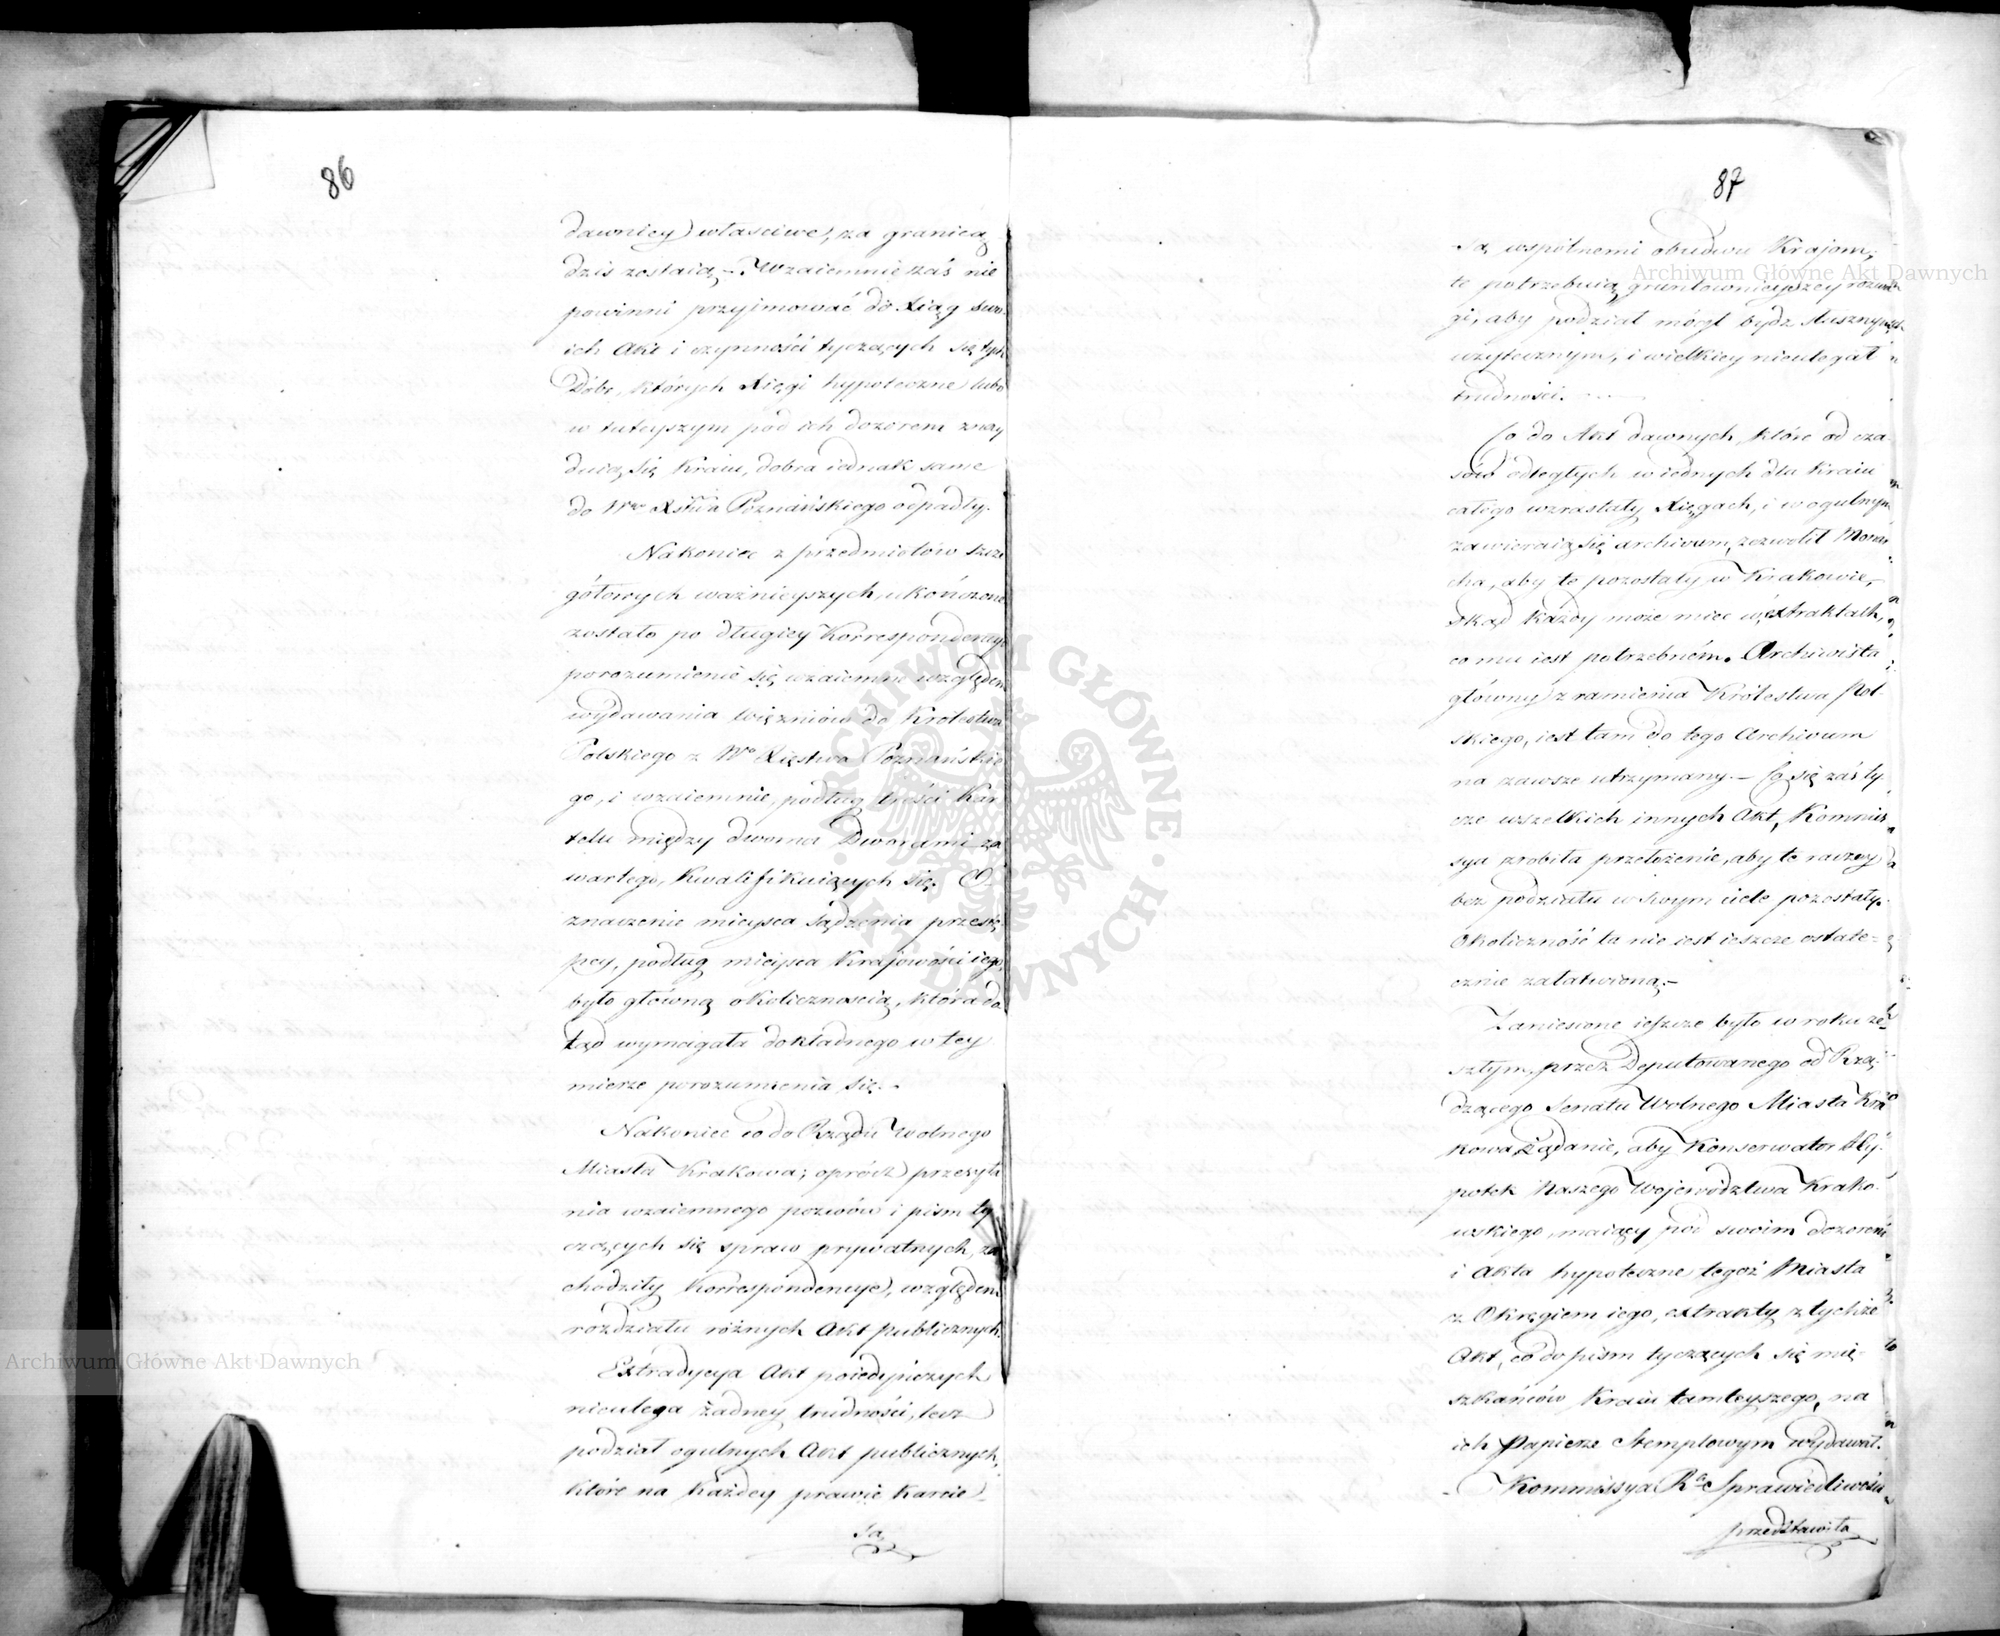 86
dawniey właściwe, za granicą
dziś zostaią. – Wzaiemnie zaś nie
powinni przyimować do Xiąg swo-
ich Akt i czynności tyczących się tych
Dóbr, których Xięgi hypoteczne lubo
w tuteyszym pod ich dozorem znay
duią się Kraiu, dobra iednak same
do Wgo Xstwa Poznańskiego odpadły.
Nakoniec z przedmiotów szcze
gółowych ważnieyszych, ukończone
zostało po długiey Korrespondencyi
porozumienie się wzaiemne względem
wydawania więzniów do Królestwa
Polskiego z Wo Xięstwa Poznańskie
go, i wzaiemnie, podług treści Kar
telu między dwoma Dworami za
wartego, kwalifikuiących się. O-
znaczenie mieysca sądzenia przestę
pcy, podług mieysca Krajowości iego,
było główną okolicznością, która do
tąd wymagała dokładnego w tey
mierze porozumienia się. -
Nakoniec co do Rządu Wolnego
Miasta Krakowa; oprócz przesyła
nia wzaiemnego pozwów i pism ty
czących się spraw prywatnych, za
chodziły Korrespondencye, względem
rozdziału różnych Akt publicznych.
Extradycya Akt poiedyńczych
nieulega żadney trudności, lecz
podział ogulnych Akt publicznych,
które na każdey prawie karcie
są
87
są wspólnemi obudwu Krajom,
te potrzebuią gruntownieyszey rozwa
gi, aby podział mógł bydz słusznym,
użytecznym, i wielkiey nieulegał
trudności.
Co do Akt dawnych, które od cza-
sów odległych w iednych dla Kraiu
całego wzrastały Xięgach, i w ogulnym
zawieraią się archivum, zezwolił Monar
cha, aby te pozostały w Krakowie,
zkąd każdy może mieć w extraktach,
co mu iest potrzebném. Archiwista
główny z ramienia Królestwa Pol-
skiego, iest tam do tego Archivum
na zawsze utrzymany. – Co się zaś ty
cze wszelkich innych Akt, Kommis
sya zrobiła przełożenie, aby te raczey
bez podziału w swym ciele pozostały.
Okoliczność ta nie iest ieszcze ostate-
cznie załatwioną. –
Zaniesione ieszcze było w roku ze-
szłym, przez Deputowanego od Rzą-
dzącego Senatu Wolnego Miasta Kra
kowa, żądanie, aby Konserwator Hy-
potek Naszego Województwa Krako-
wskiego, maiący pod swoim dozorem
i Akta hypoteczne tegoż Miasta
z Okręgiem iego, extrakty z tychże
Akt, co do pism tyczących się mię-
szkańców Kraiu tamteyszego, na
ich Papierze Stemplowym wydawał.
Kommissya R. Sprawiedliwości
przedstawiła
Archiwum Główne Akt Dawnych
Archiwum Główne Akt Dawnych
ARCHIWUM GŁÓWNE AKT DAWNYCH